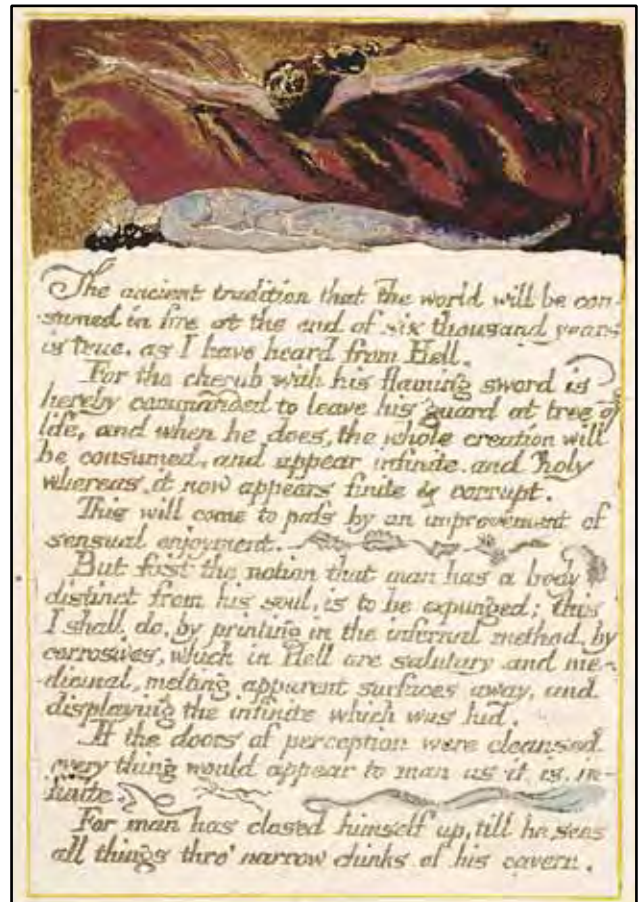 The ancient tradition that the world will be con-
-sumed in fire at the end of six thousand years
is true, as I have heard from Hell.
For the cherub with his flaming sword is
hereby commanded to leave his guard at tree of
life, and when he does, the whole creation will
be consumed, and appear infinite. and holy
whereas it now appears finite & corrupt.
This will come to paſs by an improvement of
sensual enjoyment.
But first the notion that man has a body
distinct from his soul, is to be expunged; this
I shall do, by printing in the infernal method, by
corrosives, which in Hell are salutary and me-
-dicinal, melting apparent surfaces away, and
displaying the infinite which was hid.
If the doors of perception were cleansed
every thing would appear to man as it is, in-
-finite.
For man has closed himself up, till he sees
all things thro' narrow chinks of his cavern.